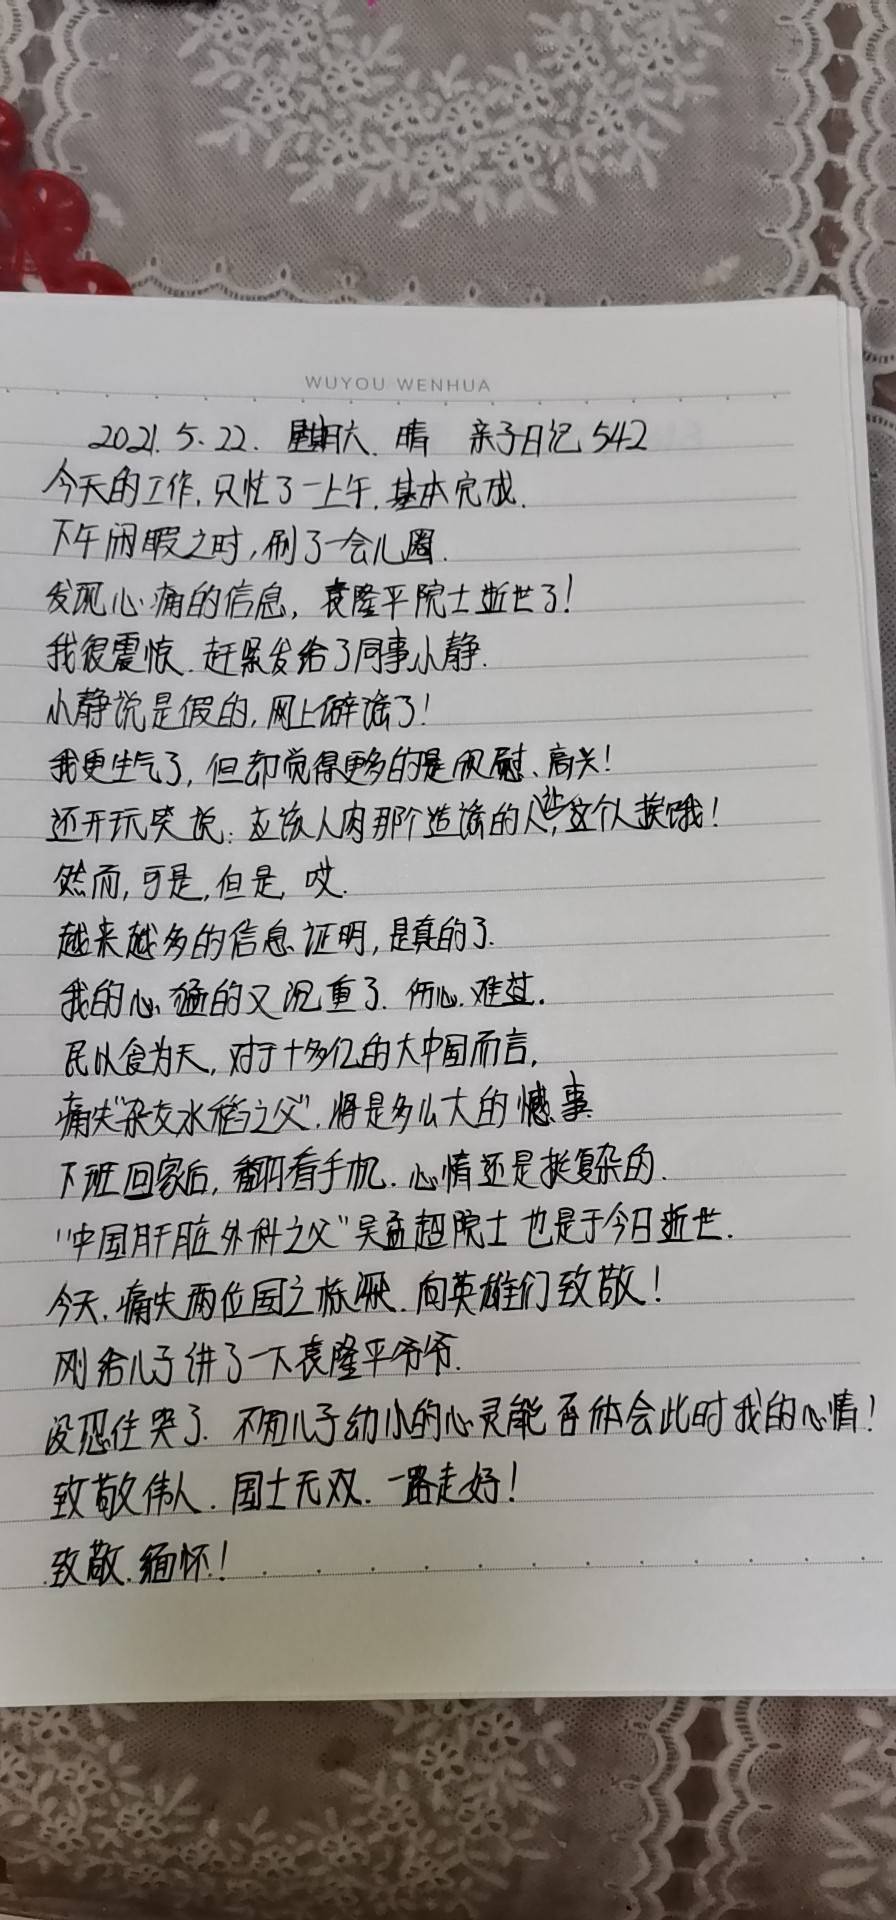 WUYOU WENHUA
2021.5.22. 星期六.晴 亲子日记542
今天的工作,只忙了一上午,基本完成.
下午闲暇之时,刷了一会儿圈.
发现心痛的信息,袁隆平院士逝世了!
我很震惊.赶紧发给了同事小静.
小静说是假的,网上辟谣了!
我更生气了,但却觉得更多的是欣慰、高兴!
还开玩笑说:应该人肉那个造谣的人,让这个人挨饿!
然而,可是,但是,哎.
越来越多的信息证明,是真的了.
我的心,猛的又沉重了.伤心.难过.
民以食为天,对于十多亿的大中国而言,
痛失"杂交水稻之父".将是多么大的憾事
下班回家后,翻看手机.心情还是挺复杂的.
"中国肝脏外科之父"吴孟超院士也是于今日逝世.
今天,痛失两位国之栋梁.向英雄们致敬!
刚给儿子讲了一下袁隆平爷爷.
没忍住哭了.不知儿子幼小的心灵能否体会此时我的心情!
致敬伟人.国士无双.一路走好!
致敬.缅怀!